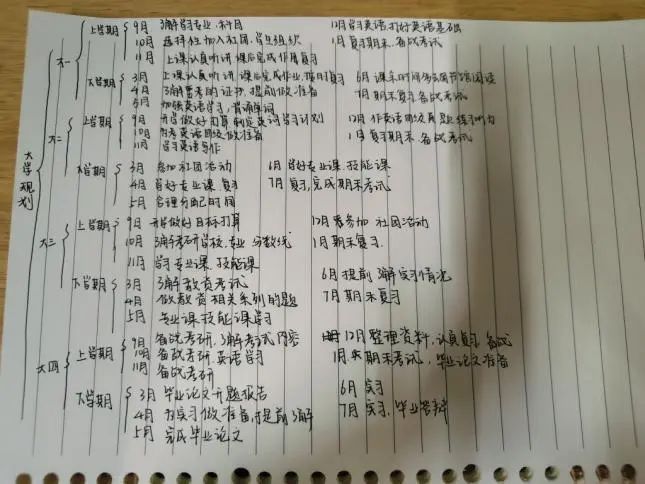 大学规划
大一
上学期
9月 了解学习专业、科目
10月 选择性加入社团、学生组织
11月 上课认真听讲 课后完成作用复习
12月 学习英语,打好英语基础
1月 复习期末、备战考试
下学期
3月 上课认真听讲,课后完成作业,按时复习
4月 了解要考的证书,提前做准备
5月 加强英语学习,背诵单词
6月 课余时间多去图书馆阅读
7月 期末复习、备战考试
大二
上学期
9月 开学做好打算 制定英语学习计划
10月 为考英语四级做准备
11月 学习英语写作
12月 作英语四级真题,练习听力
1月 复习期末、备战考试
下学期
3月 参加社团活动
4月 学好专业课、复习
5月 合理分配时间
6月 学好专业课、技能课
7月 复习,完成期末考试
大三
上学期
9月 开学做好目标打算
10月 了解考研学校、专业、分数线
11月 学习专业课、技能课
12月 参加社团活动
1月 期末复习
下学期
3月 了解教资考试
4月 做教资相关系列的题
5月 专业课、技能课学习
6月 提前了解实习情况
7月 期末复习
大四
上学期
9月 备战考研、了解考试内容
10月 备战考研、英语学习
11月 备战考研
12月 整理资料,认真复习、备战
1月 期末考试,毕业论文准备
下学期
3月 毕业论文开题报告
4月 为实习做准备,提前了解
5月 完成毕业论文
6月 实习
7月 实习,毕业答辩